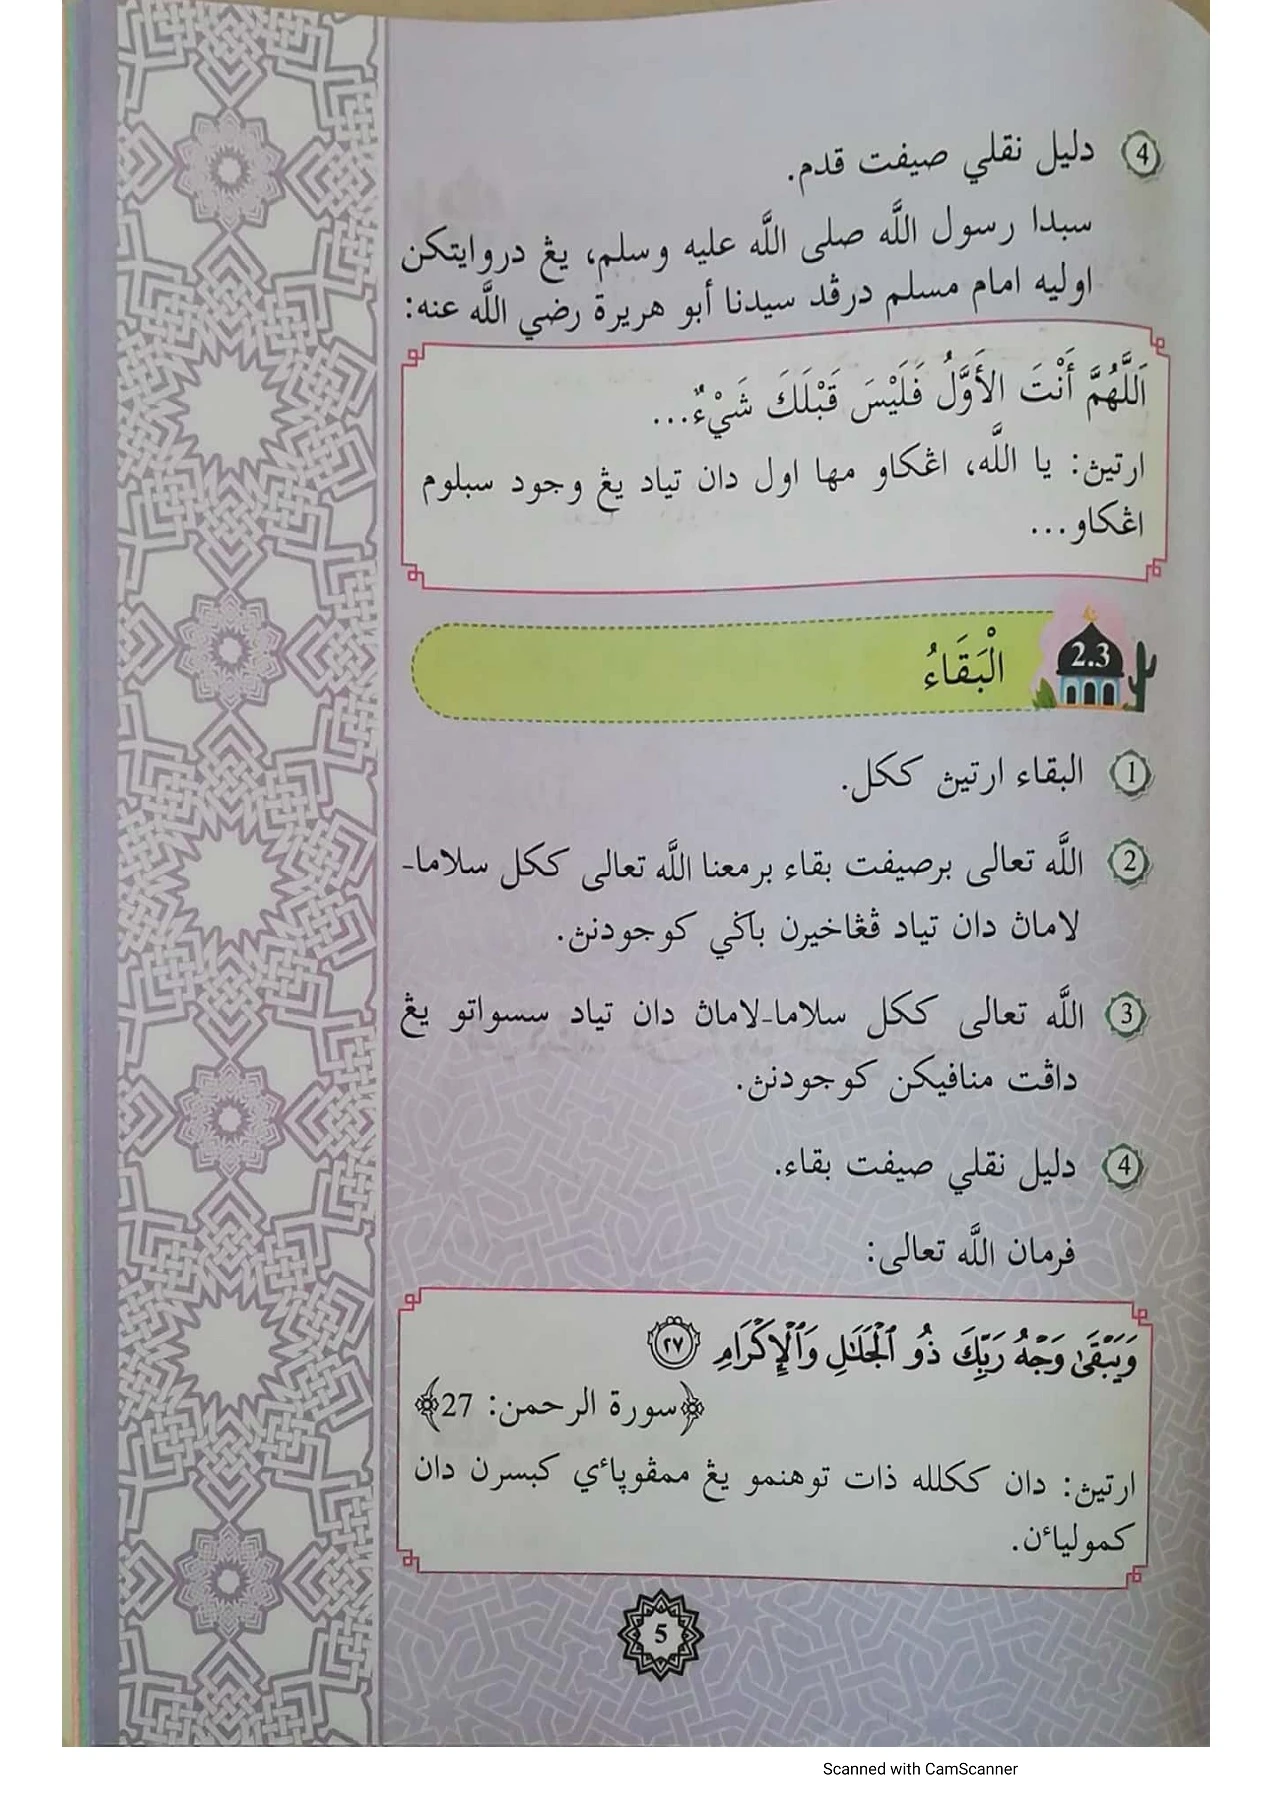 4 دليل نقلي صيفت قدم.
سبدا رسول اللَّه صلى اللَّه عليه وسلم، يڠ دروايتكن
اوليه امام مسلم درڤد سيدنا أبو هريرة رضي اللَّه عنه:
اَللَّهُمَّ أَنْتَ الأَوَّلُ فَلَيْسَ قَبْلَكَ شَيْءٌ...
ارتيڽ: يا اللَّه، اڠكاو مها اول دان تياد يڠ وجود سبلوم
اڠكاو...
2.3 الْبَقَاءُ
1 البقاء ارتيڽ ككل.
2 اللَّه تعالى برصيفت بقاء برمعنا اللَّه تعالى ككل سلاما-
لاماڽ دان تياد ڤڠاخيرن باݢي كوجودنڽ.
3 اللَّه تعالى ككل سلاما-لاماڽ دان تياد سسواتو يڠ
داڤت منافيكن كوجودنڽ.
4 دليل نقلي صيفت بقاء.
فرمان اللَّه تعالى:
وَيَبْقَىٰ وَجْهُ رَبِّكَ ذُو ٱلْجَلَـٰلِ وَٱلْإِكْرَامِ ٢٧
﴿سورة الرحمن: 27﴾
ارتيڽ: دان ككلله ذات توهنمو يڠ ممڤوڽاءي كبسرن دان
كمولياءن.
5
Scanned with CamScanner